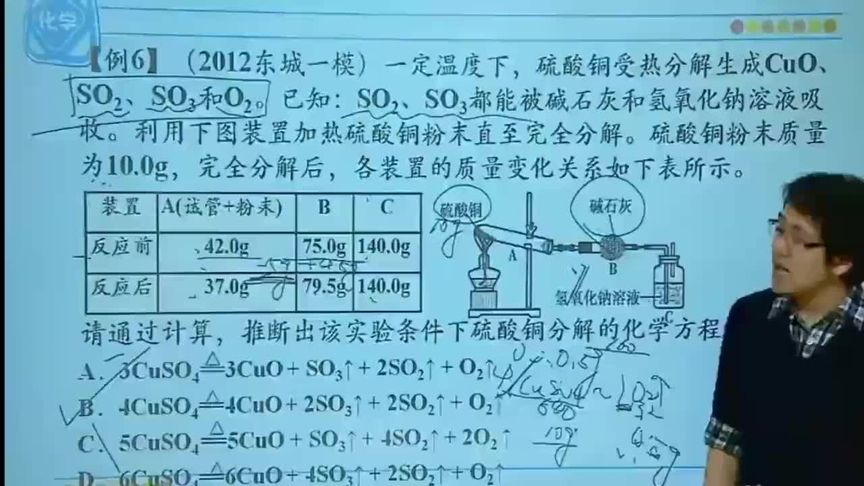 化学
【例6】（2012东城一模）一定温度下，硫酸铜受热分解生成CuO、
SO₂、SO₃和O₂。已知：SO₂、SO₃都能被碱石灰和氢氧化钠溶液吸
收。利用下图装置加热硫酸铜粉末直至完全分解。硫酸铜粉末质量
为10.0g，完全分解后，各装置的质量变化关系如下表所示。
装置 A(试管+粉末) B C
反应前 42.0g 75.0g 140.0g
反应后 37.0g 79.5g 140.0g
硫酸铜
10g
碱石灰
A
B
氢氧化钠溶液
C
请通过计算，推断出该实验条件下硫酸铜分解的化学方程
A. 3CuSO₄≜3CuO + SO₃↑ + 2SO₂↑ + O₂↑
B. 4CuSO₄≜4CuO + 2SO₃↑ + 2SO₂↑ + O₂↑
C. 5CuSO₄≜5CuO + SO₃↑ + 4SO₂↑ + 2O₂↑
D. 6CuSO₄≜6CuO + 4SO₃↑ + 2SO₂↑ + O₂↑
10g